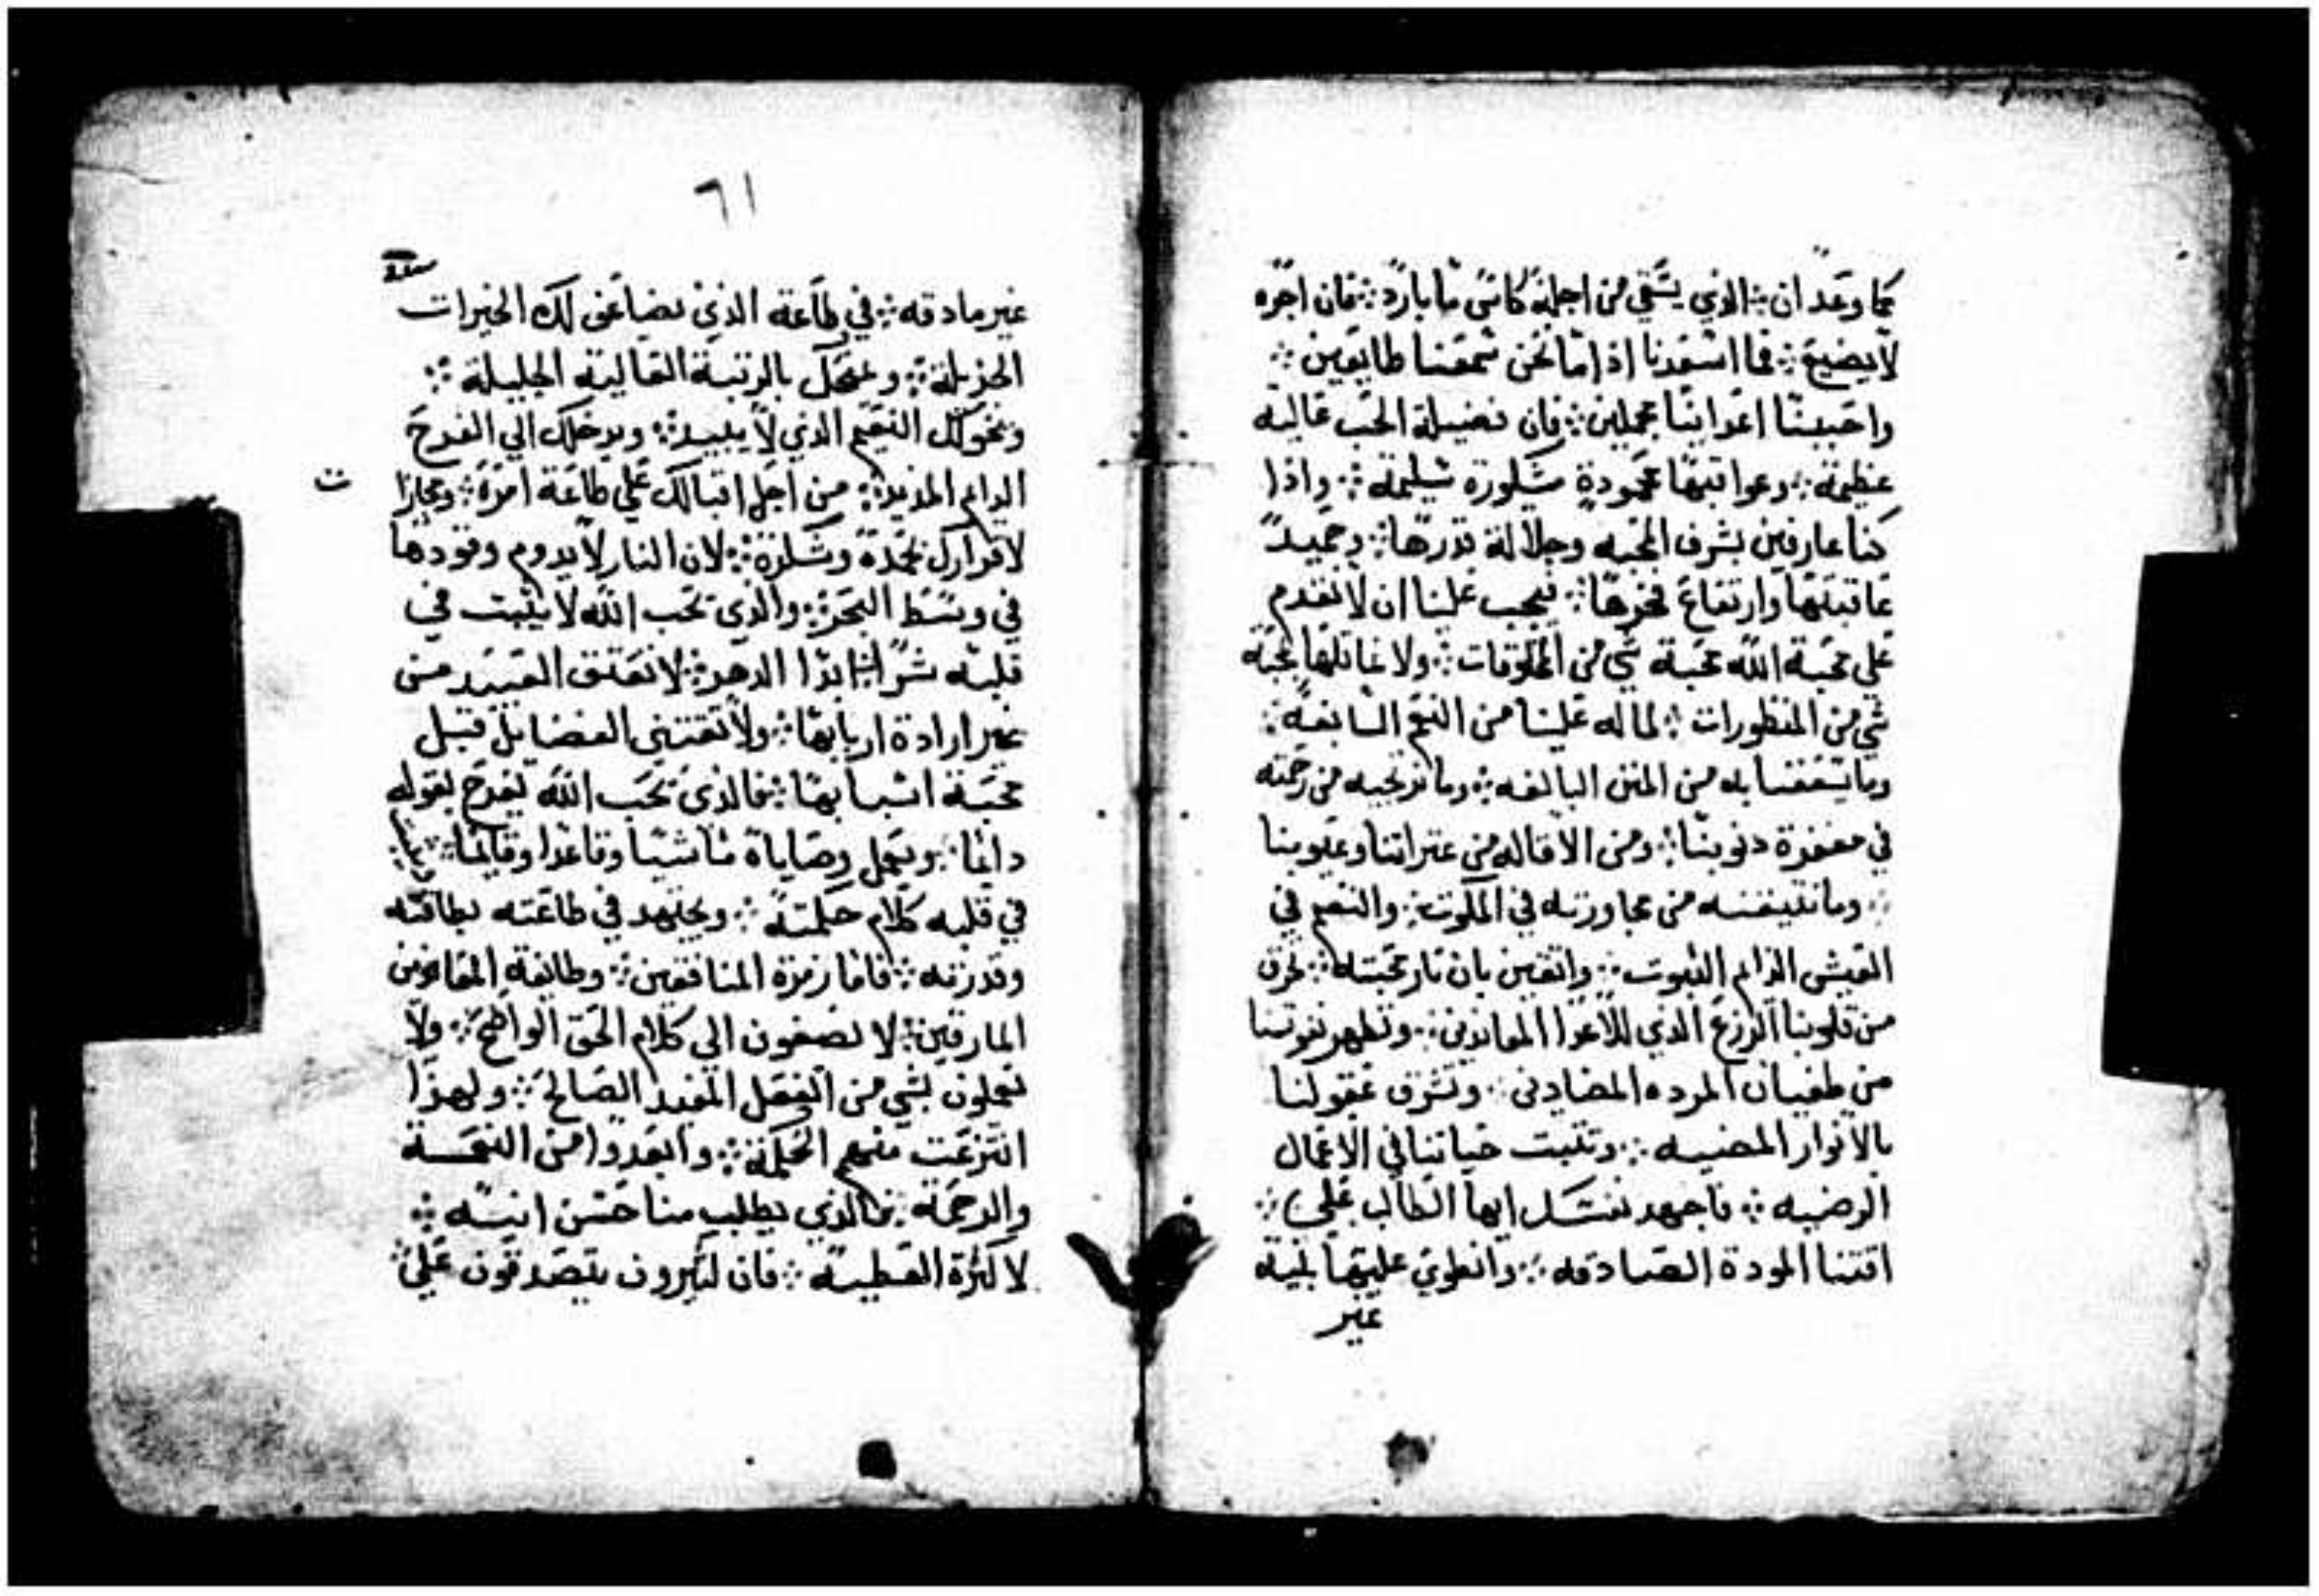 كما وعد ان ܀ الذي يسقي من اجله كاس ما بارد ܀ فان اجره
لا يضيع ܀ فما اسعدنا اذا ما نحن سمعنا طايعين ܀
واحببنا اعداينا عجلين ܀ فان فضيلة الحب عاليه
عظيمة ܀ وعواقبها محمودة مشكورة سليمة ܀ واذا
كنا عارفين بشرف المحبه وجلالة قدرها ܀ وحميد
عاقبتها وارتفاع فخرها ܀ فيجب علينا ان لا نقدم
علي محبة الله محبة شي من المخلوقات ܀ ولا نماثلها بمحبة
شي من المنظورات ܀ لما له علينا من النعم السابغه ܀
وما يسعفنا به من المنن البالغه ܀ وما نرتجيه من رحمته
في مغفرة دنوبنا ܀ ومن الاقاله من عتراتنا وعيوبنا
܀ وما نتيقنه من مجاورته في الملكوت ܀ والنعيم في
العيش الدايم الثبوت ܀ واثقين بان نار محبته ܀ تحرق
من قلوبنا الزرع الذي للاعدا المعاندين ܀ وتطهر نفوسنا
من طغيان المرده المضادين ܀ وتشرق عقولنا
بالانوار المضييه ܀ وتثبت حياتنا في الاعمال
الرضيه ܀ فاجهد نفسك ايها الطالب علي ܀
اقتنا المودة الصادقه ܀ وانطوي عليها بنية
غير
٦١
غير مادقه ܀ في طاعة الذي يضاعف لك الخيرات
الجزيلة ܀ و بالرتبة العالية الجليلة ܀
ويخولك النعيم الذي لا يبيد ܀ ويدخلك الي الفرح
الدايم المديد ܀ من اجل اقبالك علي طاعة امره ܀
لاقرارك بحمده وشكره ܀ لان النار لا يدوم وقودها
في وسط البحر ܀ والذي يحب الله لا يثبت في
قلبه شرا ابدا الدهر ܀ لا تعتق العبيد من
غير ارادة اربابها ܀ ولا تقتني الفضايل قبل
محبة اسبابها ܀ فالذي يحب الله يفرح بقوله
دايما ܀ ويعمل وصاياه ماشيا وقاعدا وقايما ܀
في قلبه كلام حكمته ܀ ويجتهد في طاعته بطاقته
وقدرته ܀ فاما زمرة المنافقين ܀ وطايفة
المارقين ܀ لا يصغون الي كلام الحق الواضح ܀ ولا
يعملون بشي من الفعل المفيد الصالح ܀ ولهذا
انتزعت منهم الحكمة ܀ وابعدوا من النعمة
والرحمة ܀ فالذي يطلب منا حسن النيه ܀
لا كثرة العطيه ܀ فان كثيرون يتصدقون علي